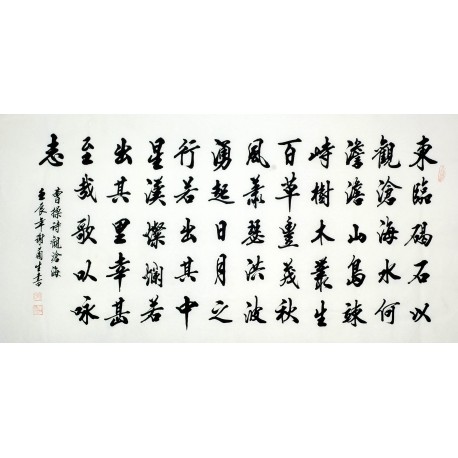 東臨碣石以
觀滄海水何
澹澹山島竦
峙樹木叢生
百草豐茂秋
風蕭瑟洪波
湧起日月之
行若出其中
星漢燦爛若
出其里幸甚
至哉歌以咏
志
曹操诗觀滄海
壬辰年謝生書